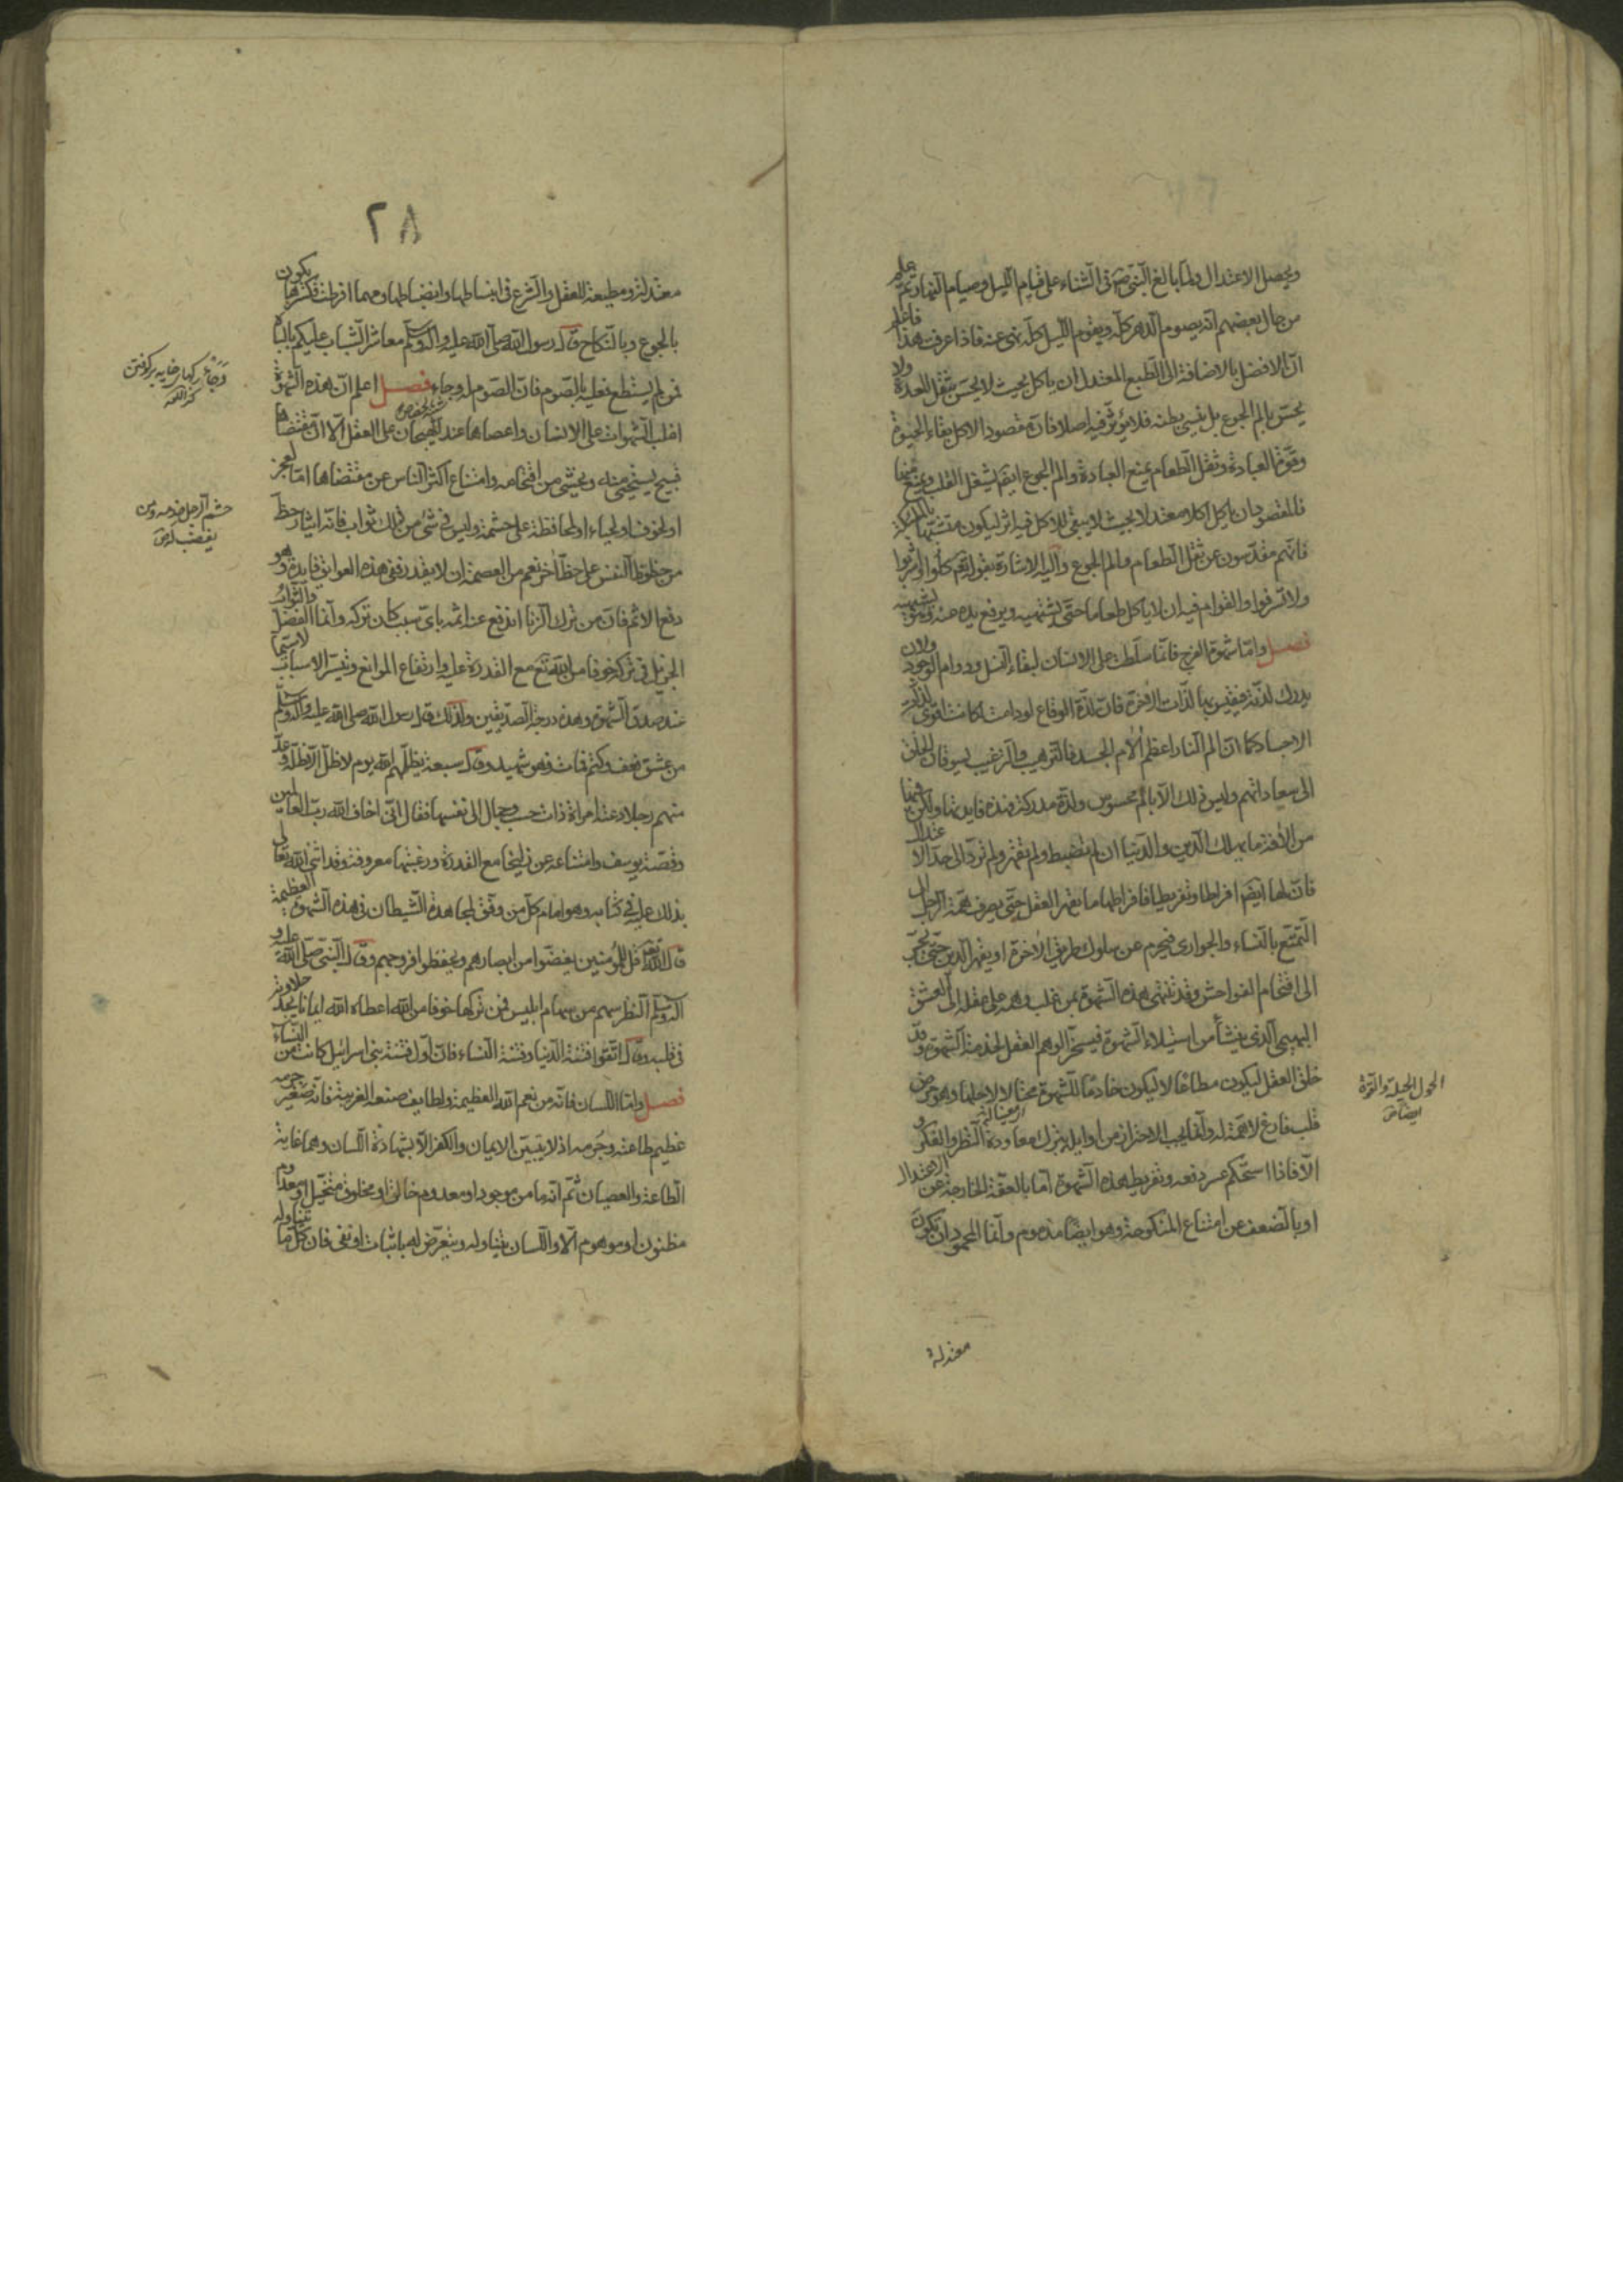 ويحصل الاعتدال ولما بالغ النبى ص فى الثناء على قيام الليل وصيام النهار ثم علم
من حال بعضهم انه يصوم الدهر كله ويقوم الليل كله نهى عنه فاذا عرفت هذا فاعلم
ان الافضل بالاضافة الى الطبع المعتدل ان ياكل بحيث لا يحس بثقل المعدة ولا
يحس بالم الجوع بل ينسى بطنه فلا يؤثر فيه اصلا فان مقصود الاكل بقاء الحيوة
وقوة العبادة وثقل الطعام يمنع العبادة والم الجوع ايضا يشغل القلب ويمنع منها
فالمقصود ان ياكل اكلا معتدلا بحيث لا يبقى للاكل فيه اثر ليكون متشبها بالملئكة
فانهم مقدسون عن ثقل الطعام والم الجوع واليه الاشارة بقوله تعالى كلوا واشربوا
ولا تسرفوا والقوام فيه ان لا ياكل طعاما حتى يشتهيه ويرفع يده عنه وهو يشتهيه
فصل واما شهوة الفرج فانما سلطت على الانسان لبقاء النسل ودوام الوجود ولان
يدرك لذته فيقيس بها لذات الاخرة فان لذة الوقاع لو دامت لكانت اقوى لذات
الاجساد كما ان الم النار اعظم الام الجسد فالترهيب والترغيب يسوقان الخلق
الى سعاداتهم وليس ذلك الا بالم محسوس ولذة مدركة فهذه فايدتها ولكن فيها
من الافة ما يهلك الدين والدنيا ان لم تضبط ولم تقهر ولم ترد الى حد الاعتدال
فان لها ايضا افراطا وتفريطا فافراطها ما يقهر العقل حتى يصرف همة الرجال الى
التمتع بالنساء والجوارى فيحرم عن سلوك طريق الاخرة او يقهر الدين حتى يجر
الى اقتحام الفواحش وقد تنتهى هذه الشهوة بمن غلب وهمه على عقله الى العشق
البهيمى الذى ينشأ من استيلاء الشهوة فيسخر الوهم العقل لخدمة الشهوة وقد
خلق العقل ليكون مطاعا لا ليكون خادما للشهوة محتالا لاجلها وهو مرض
قلب فارغ لا همة له وانما يجب الاحتراز من اوايله بترك معاودة النظر والفكر و
الا فاذا استحكم عسر دفعه وتفريط هذه الشهوة اما بالعفة الخارجة عن الاعتدال
او بالضعف عن امتناع المنكوحة وهو ايضا مذموم وانما المحمود ان تكون
معتدلة
الحول الحيلة والقوة
ايضا ص
٢٨
معتدلة ومطيعة للعقل والشرع فى انبساطها وانضباطها ومهما افرطت فكسرها يكون
بالجوع وبالنكاح قال رسول الله صلى الله عليه واله وسلم معاشر الشباب عليكم بالباه
فمن لم يستطع فعليه بالصوم فان الصوم له وجاء فصل اعلم ان هذه الشهوة
اغلب الشهوات على الانسان واعصاها عند الهيجان على العقل الا ان مقتضاها
قبيح يستحيى منه ويخشى من اقتحامه وامتناع اكثر الناس عن مقتضاها اما لعجز
او لخوف او لحياء او لمحافظة على حشمة وليس فى شئ من ذلك ثواب فانه ايثار حظ
من حظوظ النفس على حظ اخر نعم من العصمة ان لا يقدر ففى هذه العوايق فايدة وهو
دفع الاثم فان من ترك الزنا اندفع عنه اثمه باى سبب كان تركه وانما الفضل والثواب
الجزيل فى تركه خوفا من الله تع مع القدرة عليه وارتفاع الموانع وتيسر الاسباب لا سيما
عند صدق الشهوة وهذه درجة الصديقين ولذلك قال رسول الله صلى الله عليه واله وسلم
من عشق فعف وكتم فمات فهو شهيد وقال سبعة يظلهم الله يوم لا ظل الا ظله وعد
منهم رجلا دعته امراة ذات حسب وجمال الى نفسها فقال انى اخاف الله رب العالمين
وقصة يوسف وامتناعه عن زليخا مع القدرة ورغبتها معروفة وقد اثنى الله تعالى
بذلك عليه فى كتابه وهو امام كل من وفق لمجاهدة الشيطان فى هذه الشهوة العظيمة
قال الله تع قل للمؤمنين يغضوا من ابصارهم ويحفظوا فروجهم وقال النبى صلى الله عليه و
اله وسلم النظر سهم من سهام ابليس فمن تركها خوفا من الله اعطاه الله ايمانا يجد حلاوته
فى قلبه وقال اتقوا فتنة الدنيا وفتنة النساء فان اول فتنة بنى اسرائيل كانت من النساء
فصل واما اللسان فانه من نعم الله العظيمة ولطايف صنعه الغريبة فانه صغير جرمه
عظيم طاعته وجرمه اذ لا يتبين الايمان والكفر الا بشهادة اللسان وهما غاية
الطاعة والعصيان ثم انه ما من موجود او معدوم خالق او مخلوق متخيل او معلوم
مظنون او موهوم الا واللسان يتناوله ويتعرض له باثبات او نفى فان كل ما يتناوله
حشم الرجل خدمه ومن
يغضب له ص
كنز اللغه